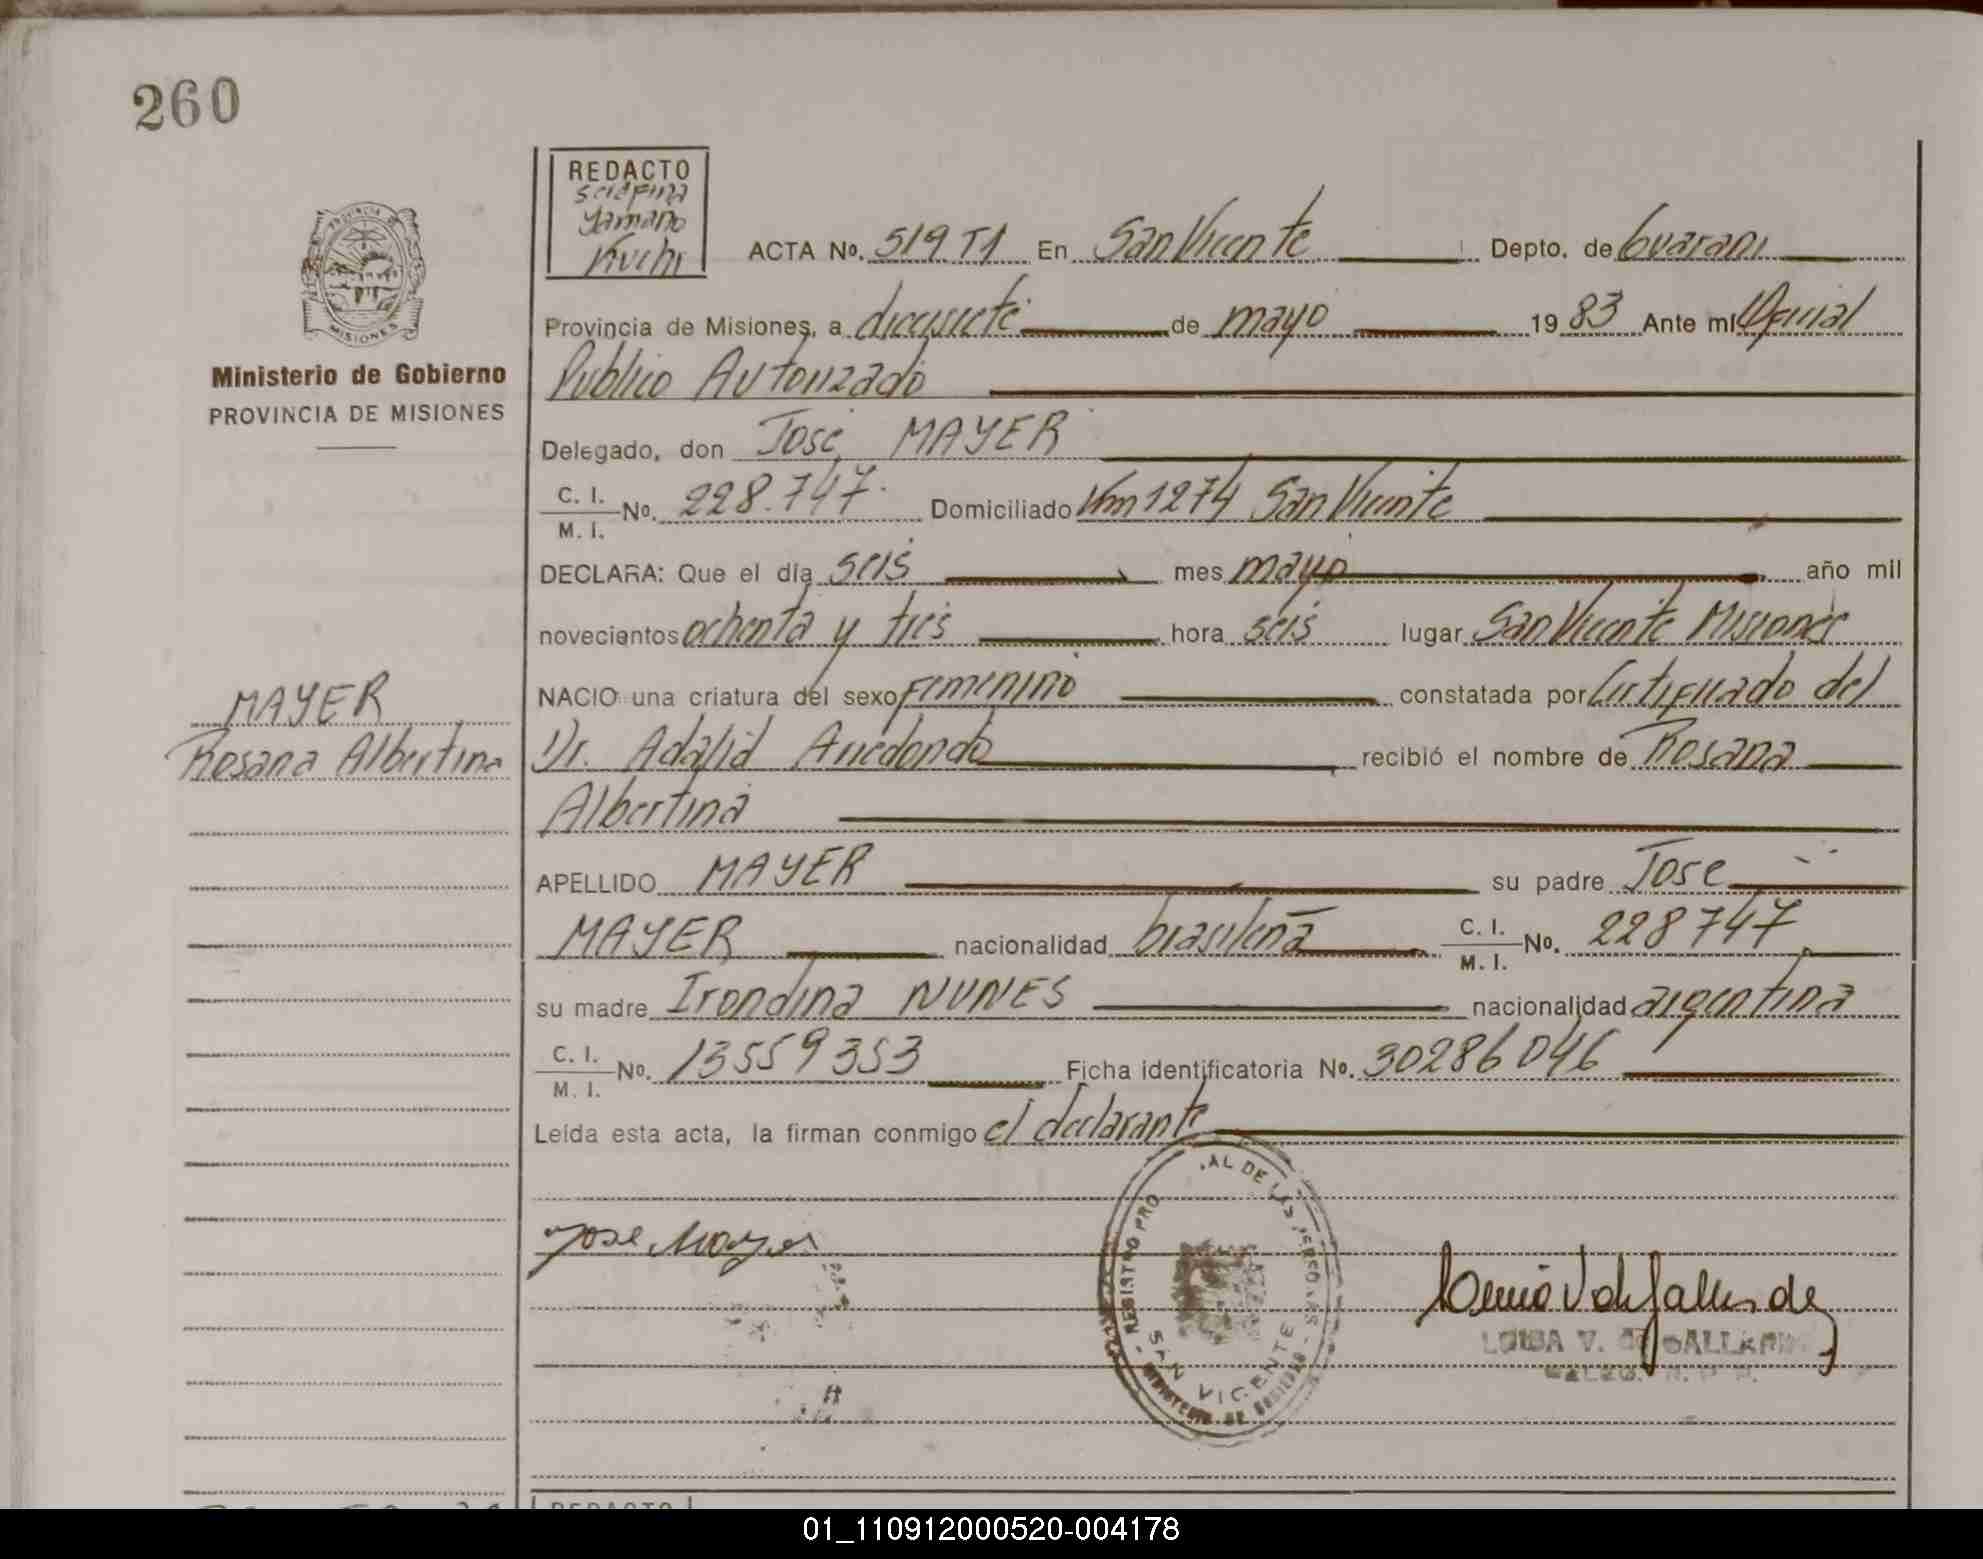 260
REDACTO
Yamano
Kuchi
PROVINCIA DE
MISIONES
ACTA No. 519 T1 En San Vicente Depto. de Guarani
Provincia de Misiones, a diecisiete de mayo 1983 Ante mí Oficial
Ministerio de Gobierno
Publico Autorizado
PROVINCIA DE MISIONES
Delegado, don José MAYER
C. I.
M. I. No. 228.747. Domiciliado Km 1274 San Vicente
DECLARA: Que el día seis mes mayo año mil
novecientos ochenta y tres hora seis lugar San Vicente Misiones
MAYER
NACIO una criatura del sexo femenino constatada por Certificado del
Rosana Albertina
Dr. Adalid Arredondo recibió el nombre de Rosana
Albertina
APELLIDO MAYER su padre José
MAYER nacionalidad brasileña C. I.
M. I. No. 228747
su madre Irondina NUNES nacionalidad argentina
C. I.
M. I. No. 13559353 Ficha identificatoria No. 30286046
Leída esta acta, la firman conmigo el declarante
Jose Mayer
REGISTRO PRO AL DE LAS PERSONAS
SAN VICENTE
MINISTERIO DE GOBIERNO
LUISA V. de
REDACTO
01_110912000520-004178